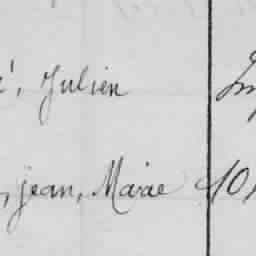 é, Julien
, jean, Marie 10